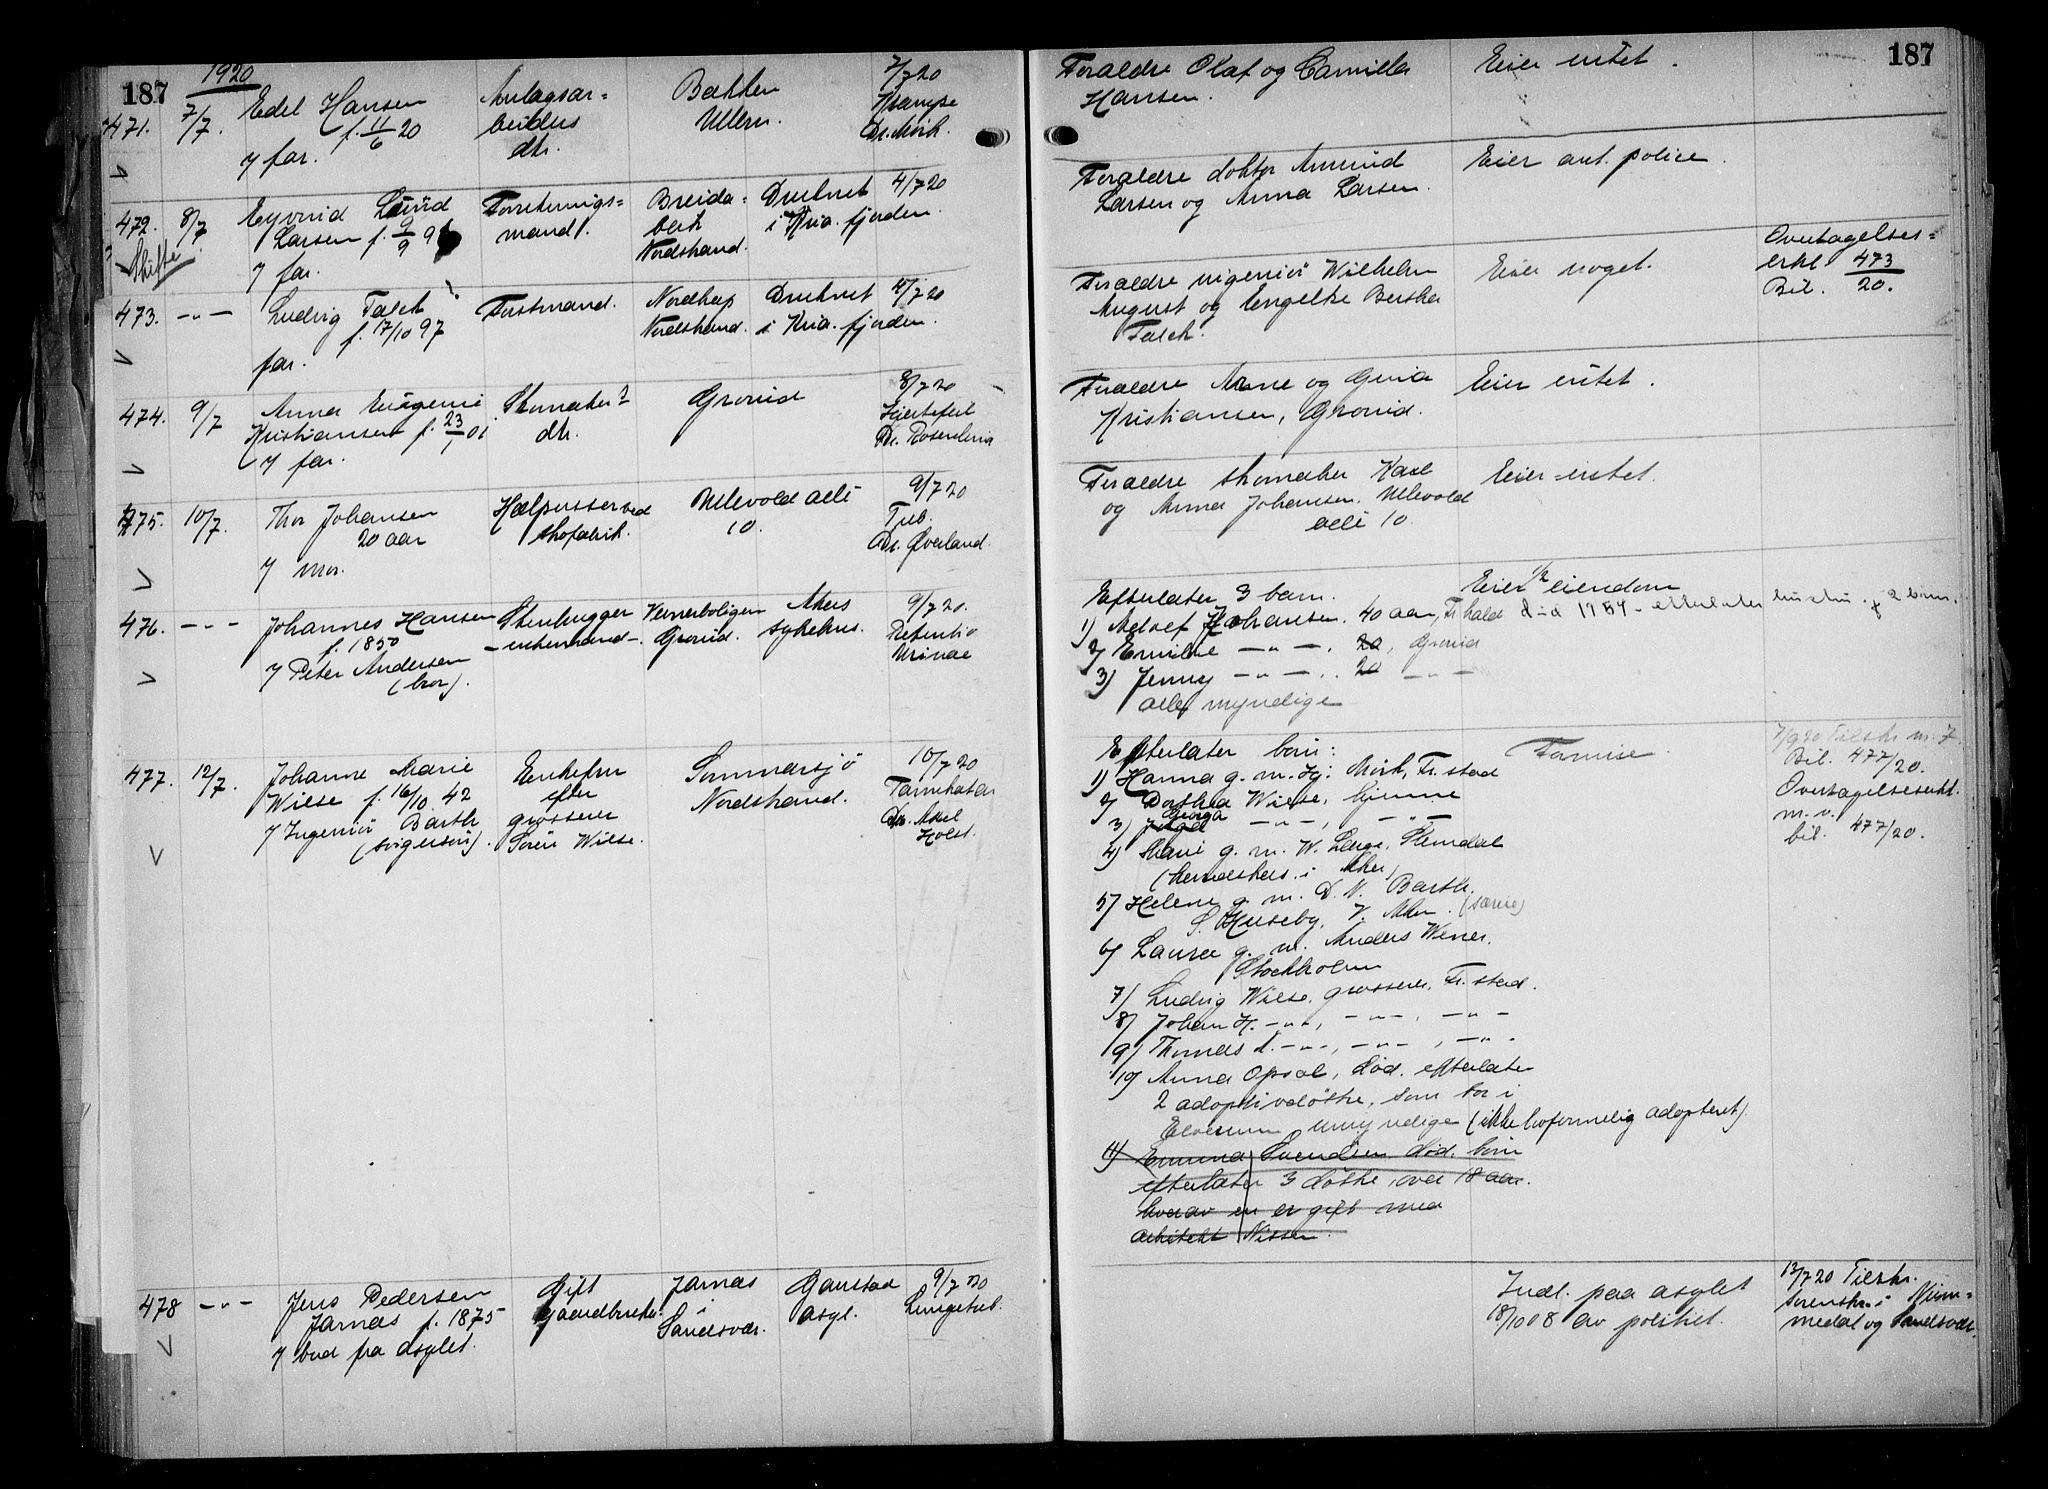 187
1920
471.
7/7.
Edel Hansen
f. 11/6 20
7 far.
Anlagsar=
beiders
dtr.
Bakken
Ullern.
7/7 20
Krampe
Dr. Mörk.
472.
Skifte
8/7
Eyvind Lund
Larsen f. 2/9 9
7 far.
Forretnings=
mand.
Breida=
bek
Nordstrand.
Druknet
i Kria. fjorden.
4/7 20
473.
-"-
Ludvig Falch
f. 17/10 97
far.
Forstmand.
Nordhep
Nordstrand.
Druknet
i Kria. fjorden.
4/7 20
474.
9/7
Anna Eugenie
Kristiansen f. 23/1 01
7 far.
Skomaker
dtr.
Grorud
8/7 20
Hjertefeil
Dr. Rosenlund
475.
10/7.
Thor Johansen
20 aar
7 mor.
Hælpusser ved
skofabrik.
Ullevold alle
10.
9/7 20
Tub.
Dr. Øverland.
476.
-"-
Johannes Hansen
f. 1850
7 Peter Andersen
(bror).
Stenhugger
-enkemand-.
Vernerboligen
Grorud.
Akers
sykehus.
9/7 20.
Retentio
Urinae
477.
12/7.
Johanne Marie
Wiese f. 16/10 42
7 Ingeniör Barth
(svigersön).
Enkefru
efter
grosserer
Sören Wiese.
Sommersjö
Nordstrand.
10/7 20
Tarmkatar
Dr. Axel
Holst.
478
-"-
Jens Pedersen
Jarnæs f. 1875
7 bud fra asylet.
Gift
gaardbruker.
Jarnæs
i
Sandsvær.
Gaustad
asyl.
9/7 20
Lungetub.
187
Foraldre Olaf og Camilla
Hansen.
Eier intet.
Foraldre doktor Amund
Larsen og Anna Larsen.
Eier ant. police.
Foraldre ingeniör Wilhelm
August og Engelke Bertha
Falch.
Eier noget.
Overtagelses=
erkl. 473
Bil. 20.
Foraldre Arne og Gina
Kristiansen, Grorud.
Eier intet.
Foraldre skomaker Karl
og Anna Johansen, Ullevold
alle 10.
Eier intet.
Efterlater 3 barn.
1) Adolf Johansen. 40 aar, Fr. hald död 1954 - efterlater hustru + 2 barn.
2) Emilie -"-, 20, Grorud
3) Jenny -"-, 20 -"-
alle myndige
Eier 1/2 eiendom
Efterlater barn:
1) Hanna g. m. Hj. Mörk, Fr. stad
2) Dorthea Wiese, hjemme
3) Georga -"-, -"-
4) Marie g. m. W. Lange, Stendal
(herredskas. i Aker)
5) Helene g. m. D. N. Barth.
S. Huseby, V. Aker. (særeie)
6) Laura g. m. Anders Wener.
Stockholm
7) Ludvig Wiese, grosserer, Fr. stad.
8) Johan H. -"-, -"-, -"-
9) Thomas A. -"-, -"-, -"-
10) Anna Opsal, död. efterlater
2 adoptivdötre, som bor i
Elverum umyndige (ikke lovformelig adopteret).
11) Emma Svendsen död. barn
efterlater 3 dötre, over 18 aar.
hvorav en er gift med
arkitekt Nissen.
Formue.
7/9 20 Tilskr. m. 7.
Bil. 477/20.
Overtagelseserkl.
m. v.
bil. 477/20.
Indl. paa asylet
18/10 08 av politiet.
13/7 20 Tilskr.
sorenskr. i Num=
medal og Sandsvær.